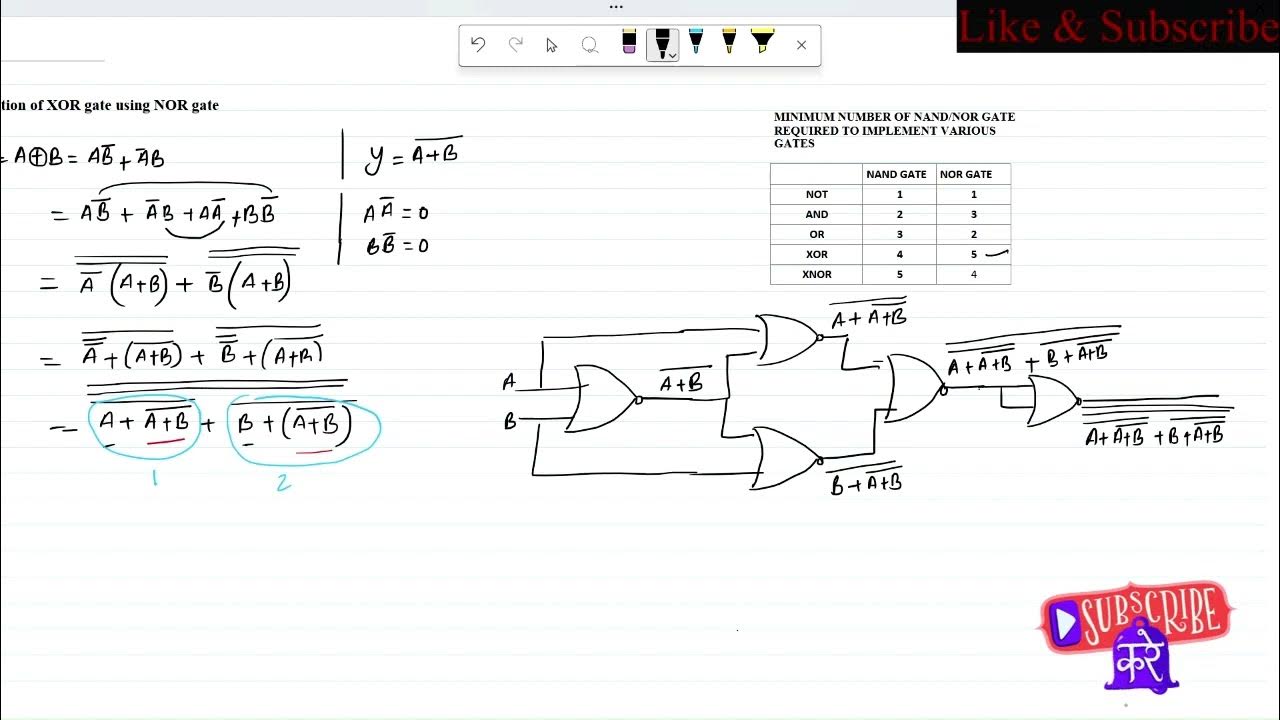 Like & Subscribe
tion of XOR gate using NOR gate
= A⊕B = AB̅ + A̅B
= AB̅ + A̅B + AA̅ + BB̅
= \overline{\overline{A̅(A+B)}} + \overline{\overline{B̅(A+B)}}
= \overline{\overline{\overline{A̅} + \overline{(A+B)}}} + \overline{\overline{\overline{B̅} + \overline{(A+B)}}}
= \overline{\overline{\overline{A + \overline{A+B}} + \overline{B + \overline{(A+B)}}}}
1 2
y = \overline{A+B}
AA̅ = 0
BB̅ = 0
MINIMUM NUMBER OF NAND/NOR GATE
REQUIRED TO IMPLEMENT VARIOUS
GATES
NAND GATE NOR GATE
NOT 1 1
AND 2 3
OR 3 2
XOR 4 5
XNOR 5 4
A
B
\overline{A+B}
\overline{A + \overline{A+B}}
\overline{B + \overline{A+B}}
\overline{\overline{A + \overline{A+B}} + \overline{B + \overline{A+B}}}
\overline{\overline{\overline{A + \overline{A+B}} + \overline{B + \overline{A+B}}}}
SUBSCRIBE
करे